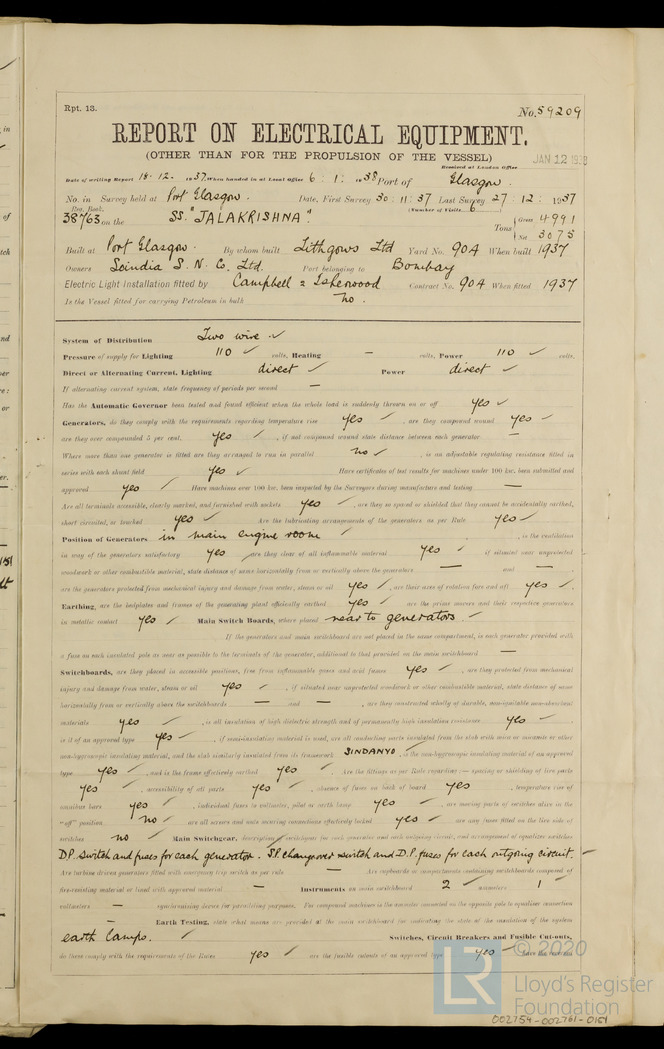 Rpt. 13.
No. 59209
REPORT ON ELECTRICAL EQUIPMENT.
(OTHER THAN FOR THE PROPULSION OF THE VESSEL)
Received at London Office JAN 12 1938
Date of writing Report 18 . 12 - 1937. When handed in at Local Office 6 : 1 : 1938 Port of Glasgow.
No. in Survey held at Port Glasgow. Date, First Survey 30 : 11 : 37 Last Survey 27 : 12 : 1937
Reg. Book. (Number of Visits 6
38763 on the SS. "JALAKRISHNA" Tons { Gross 4991
Net 3075
Built at Port Glasgow. By whom built Lithgows Ltd Yard No. 904 When built 1937
Owners Scindia S. N. Co. Ltd. Port belonging to Bombay
Electric Light Installation fitted by Campbell & Isherwood Contract No. 904 When fitted 1937
Is the Vessel fitted for carrying Petroleum in bulk no.
System of Distribution Two wire ✓
Pressure of supply for Lighting 110 ✓ volts, Heating — volts, Power 110 ✓ volts.
Direct or Alternating Current, Lighting direct ✓ Power direct ✓
If alternating current system, state frequency of periods per second —
Has the Automatic Governor been tested and found efficient when the whole load is suddenly thrown on or off yes ✓
Generators, do they comply with the requirements regarding temperature rise yes ✓, are they compound wound yes ✓
are they over compounded 5 per cent. yes ✓, if not compound wound state distance between each generator —
Where more than one generator is fitted are they arranged to run in parallel no ✓, is an adjustable regulating resistance fitted in
series with each shunt field yes ✓ Have certificates of test results for machines under 100 kw. been submitted and
approved yes ✓ Have machines over 100 kw. been inspected by the Surveyors during manufacture and testing —
Are all terminals accessible, clearly marked, and furnished with sockets yes ✓, are they so spaced or shielded that they cannot be accidentally earthed,
short circuited, or touched yes ✓ Are the lubricating arrangements of the generators as per Rule yes ✓
Position of Generators in main engine room ✓, is the ventilation
in way of the generators satisfactory yes ✓ are they clear of all inflammable material yes ✓ if situated near unprotected
woodwork or other combustible material, state distance of same horizontally from or vertically above the generators — and —
are the generators protected from mechanical injury and damage from water, steam or oil yes ✓, are their axes of rotation fore and aft yes ✓.
Earthing, are the bedplates and frames of the generating plant efficiently earthed yes ✓ are the prime movers and their respective generators
in metallic contact yes ✓ Main Switch Boards, where placed near to generators. ✓
If the generators and main switchboard are not placed in the same compartment, is each generator provided with
a fuse on each insulated pole as near as possible to the terminals of the generator, additional to that provided on the main switchboard —
Switchboards, are they placed in accessible positions, free from inflammable gases and acid fumes yes ✓, are they protected from mechanical
injury and damage from water, steam or oil yes ✓, if situated near unprotected woodwork or other combustible material, state distance of same
horizontally from or vertically above the switchboards — and —, are they constructed wholly of durable, non-ignitable non-absorbent
materials yes ✓, is all insulation of high dielectric strength and of permanently high insulation resistance yes ✓,
is it of an approved type yes ✓, if semi-insulating material is used, are all conducting parts insulated from the slab with mica or micanite or other
non-hygroscopic insulating material, and the slab similarly insulated from its framework SINDANYO, is the non-hygroscopic insulating material of an approved
type yes ✓, and is the frame effectively earthed yes ✓ Are the fittings as per Rule regarding :— spacing or shielding of live parts
yes ✓, accessibility of all parts yes ✓, absence of fuses on back of board yes ✓, temperature rise of
omnibus bars yes ✓, individual fuses to voltmeter, pilot or earth lamp yes ✓, are moving parts of switches alive in the
"off" position no ✓ are all screws and nuts securing connections effectively locked yes ✓ are any fuses fitted on the live side of
switches no ✓ Main Switchgear, description of switchgear for each generator and each outgoing circuit, and arrangement of equalizer switches
D.P. switch and fuses for each generator. S.P. changeover switch and D.P. fuses for each outgoing circuit. ✓
Are turbine driven generators fitted with emergency trip switch as per rule — Are cupboards or compartments containing switchboards composed of
fire-resisting material or lined with approved material — Instruments on main switchboard 2 ✓ ammeters 1 ✓
voltmeters — synchronising device for paralleling purposes. For compound machines is the ammeter connected on the opposite pole to equaliser connection
— Earth Testing, state what means are provided at the main switchboard for indicating the state of the insulation of the system
earth lamps. ✓ Switches, Circuit Breakers and Fusible Cut-outs,
do these comply with the requirements of the Rules yes ✓ are the fusible cutouts of an approved type yes ✓ have the reversed
© 2020
LR
Lloyd's Register
Foundation
002754-002761-0151